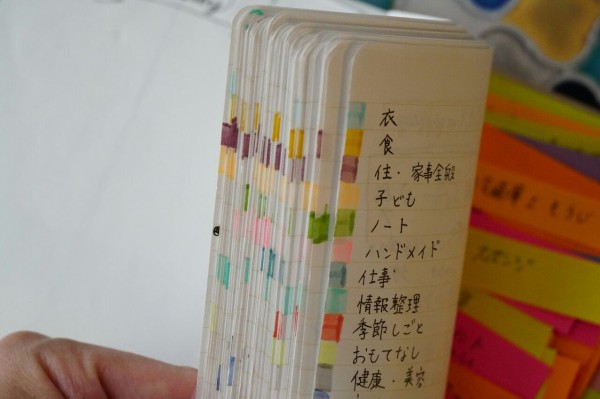 衣
食
住・家事全般
子ども
ノート
ハンドメイド
仕事
情報整理
季節しごと
おもてなし
健康・美容